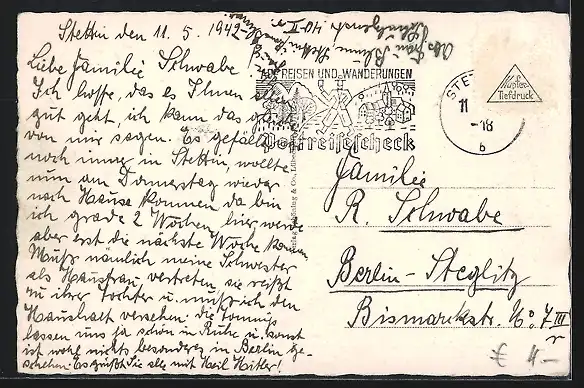 Stettin den 11. 5. 1942
Liebe Familie Schwabe!
Ich hoffe, das es Ihnen allen
gut geht, ich kann das gleiche
von mir sagen. Es gefällt
noch immer in Stettin, wollte
nun am Donnerstag wieder
nach Hause kommen da bin
ich grade 2 Wochen hier, werde
aber erst die nächste Woche kommen
Muß nämlich meine Schwester
als Hausfrau vertreten, sie reißt
zu ihrer Tochter u. muß ich den
Haushalt versehen. Die Tommys
lassen uns ja schön in Ruhe u. sonst
ist wohl nichts besonderes in Berlin ge-
schehen. Es grüßt Sie alle mit Heil Hitler!
Abs. Frau
Stettin
AUF REISEN UND WANDERUNGEN
Postreisescheck
STET
11
-18
b
Kupfer-
Tiefdruck
Familie
R. Schwabe
Berlin-Steglitz
Bismarckstr. No. 7 III
r
€ 4-